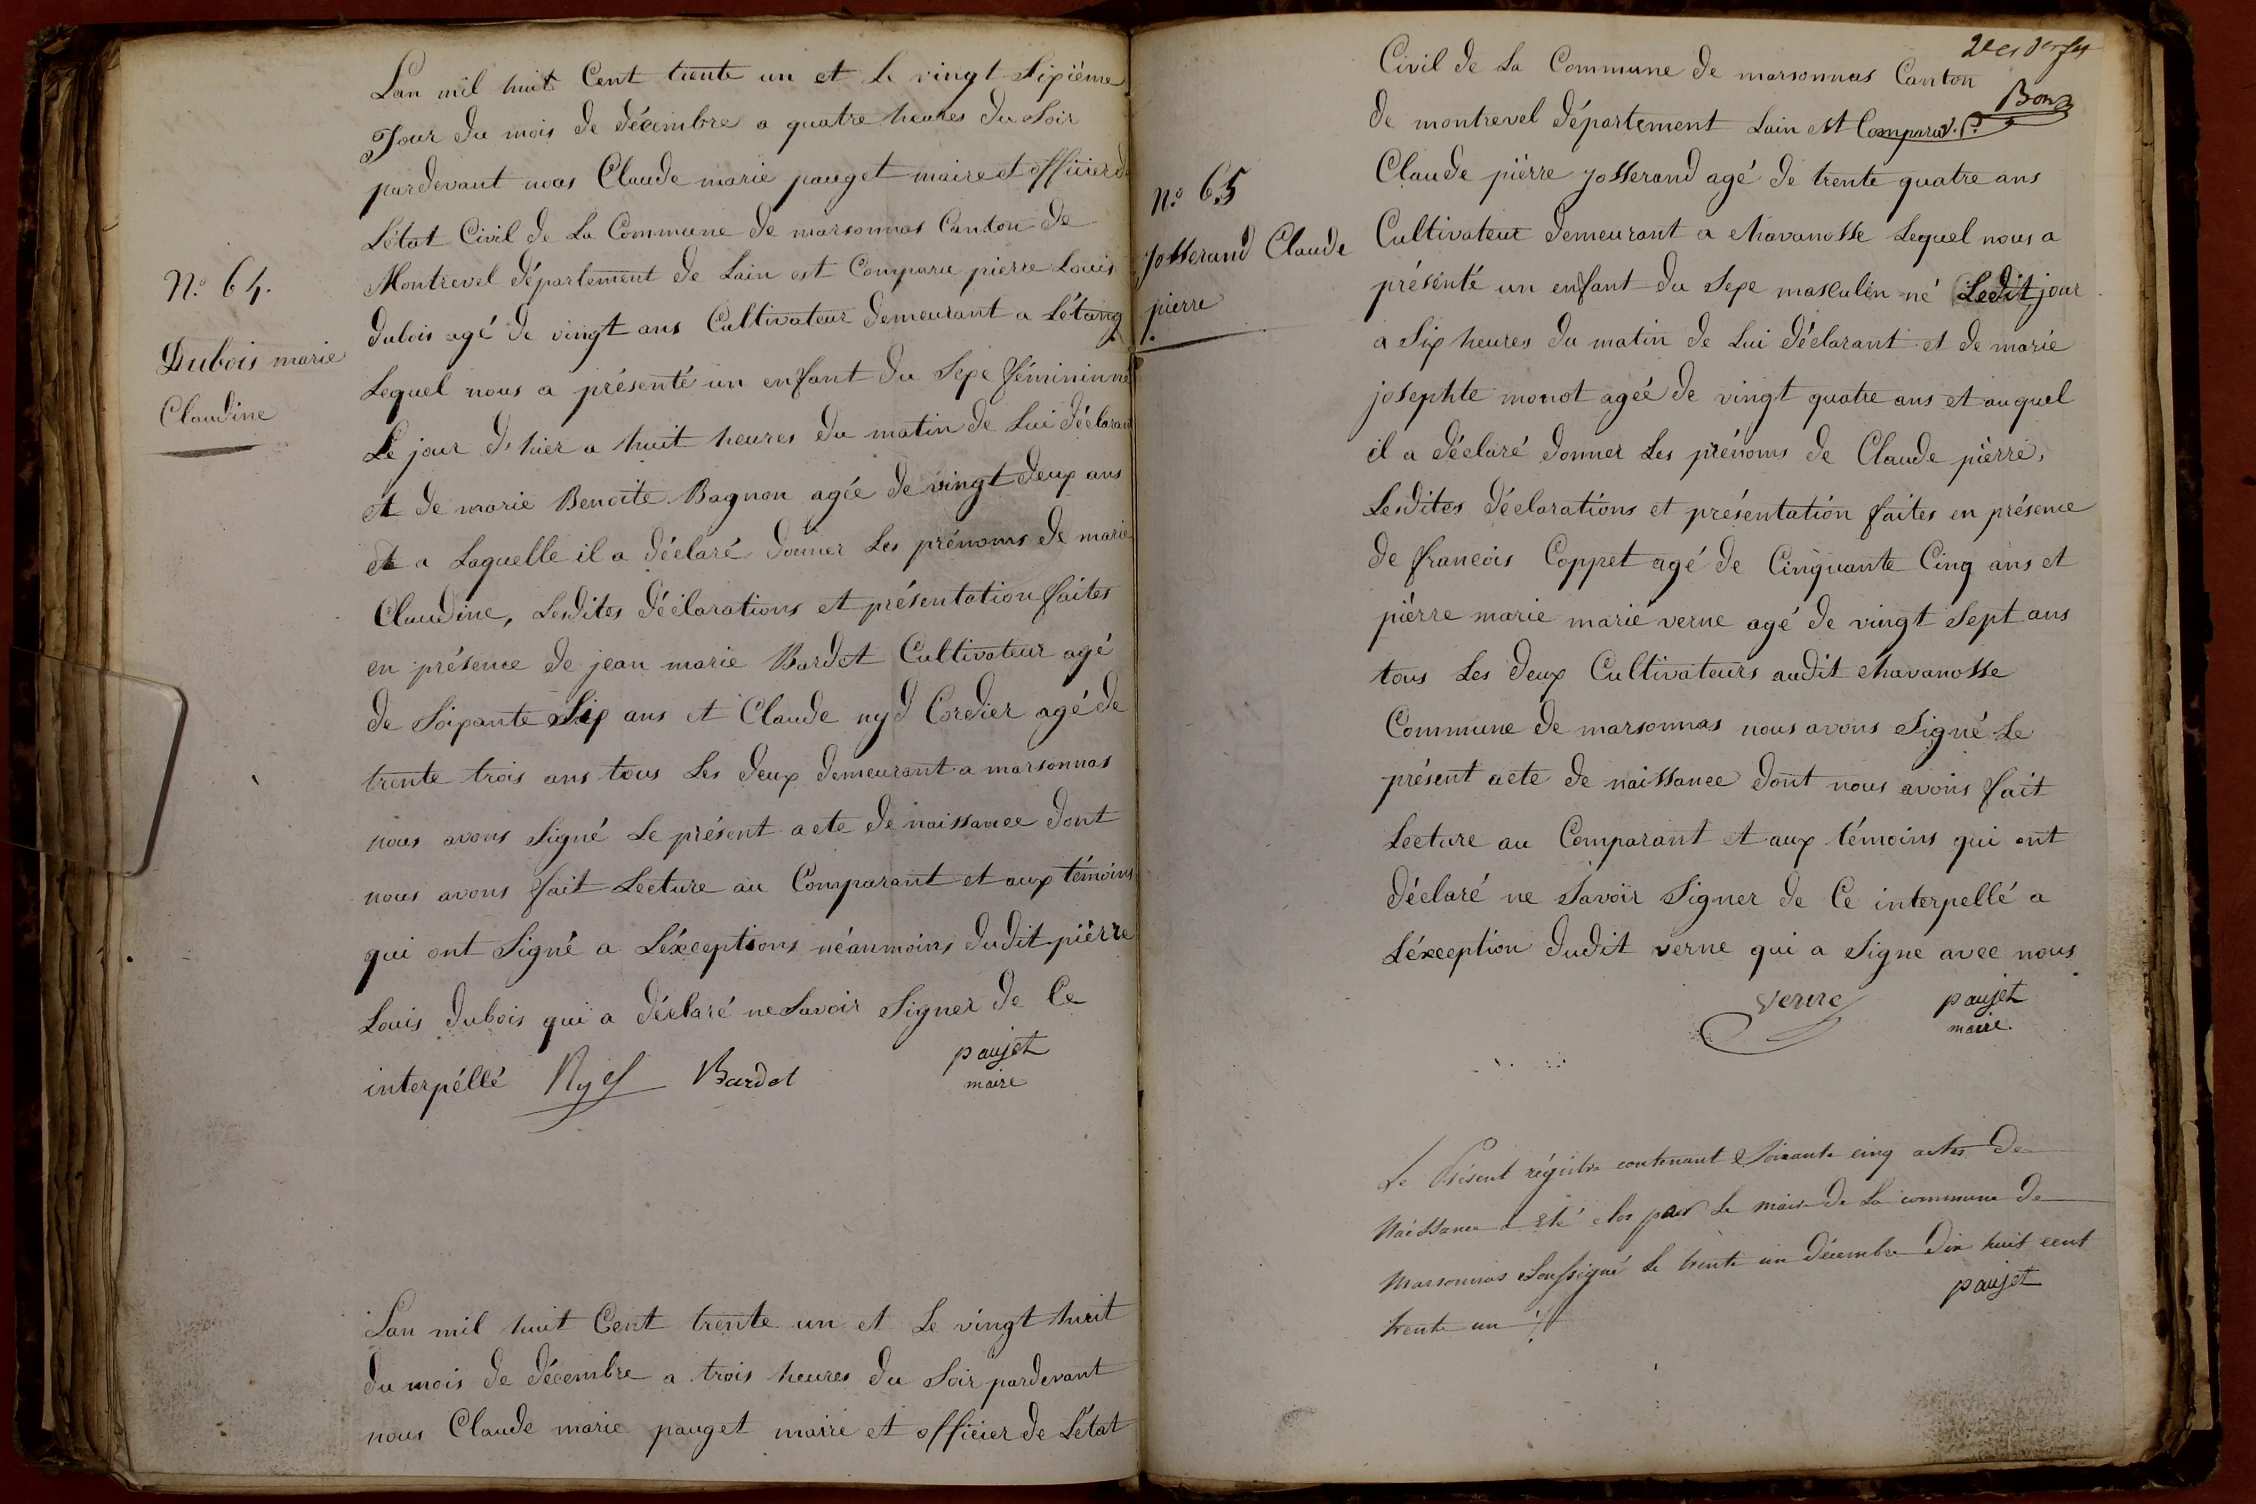 N.° 64.
Dubois marie
Claudine
Lan mil huit Cent trente un et le vingt Sixième
Jour du mois de décembre a quatre heures du Soir
pardevant nous Claude marie pauget maire et officier de
L'état Civil de La Commune de marsonnas Canton de
Montrevel département de Lain est Comparu pierre Louis
dubois agé de vingt ans Cultivateur demeurant a Létang
Lequel nous a présenté un enfant du Sexe féminin né
Le jour d'hier a huit heures du matin de Lui déclarant
et de marie Benoite Bagnon agée de vingt deux ans
et a Laquelle il a déclaré donner Les prénoms de marie
Claudine, Lesdites déclarations et présentation faites
en présence de jean marie Bardet Cultivateur agé
de Soixante Six ans et Claude nyd Cordier agé de
trente trois ans tous Les deux demeurant a marsonnas
nous avons Signé Le présent acte de naissance dont
nous avons fait Lecture au Comparant et aux témoins
qui ont Signé a L'éxceptions néanmoins dudit pièrre
Louis dubois qui a déclaré ne Savoir Signer de Ce
interpéllé Nyd Bardet paujet
maire
Lan mil huit Cent trente un et Le vingt huit
du mois de décembre a trois heures du Soir pardevant
nous Claude marie pauget maire et officier de L'état
N.° 65
Josserand Claude
pierre
Civil de La Commune de marsonnas Canton
Bon
de montrevel département Lain est Comparu
Claude pièrre josserand agé de trente quatre ans
Cultivateur demeurant a chavanosse Lequel nous a
présenté un enfant du Sexe masculin né Ledit jour
a Six heures du matin de Lui déclarant et de marie
josephte monot agée de vingt quatre ans et auquel
il a déclaré donner Les prénoms de Claude pièrre,
Lesdites déclarations et présentation faites en présence
de francois Coppet agé de Cinquante Cinq ans et
pièrre marie marié verne agé de vingt Sept ans
tous Les deux Cultivateurs audit chavanosse
Commune de marsonnas nous avons Signé Le
présent acte de naissance dont nous avons fait
Lecture au Comparant et aux témoins qui ont
déclaré ne Savoir Signer de Ce interpellé a
L'éxception dudit verne qui a Signe avec nous
verne paujet
maire.
Le Présent régistre contenant Soixante cinq actes de
Naissance a été clos par Le maire de La commune de
Marsonnas Soussigné Le trente un décembre dix huit cent
trente un paujet